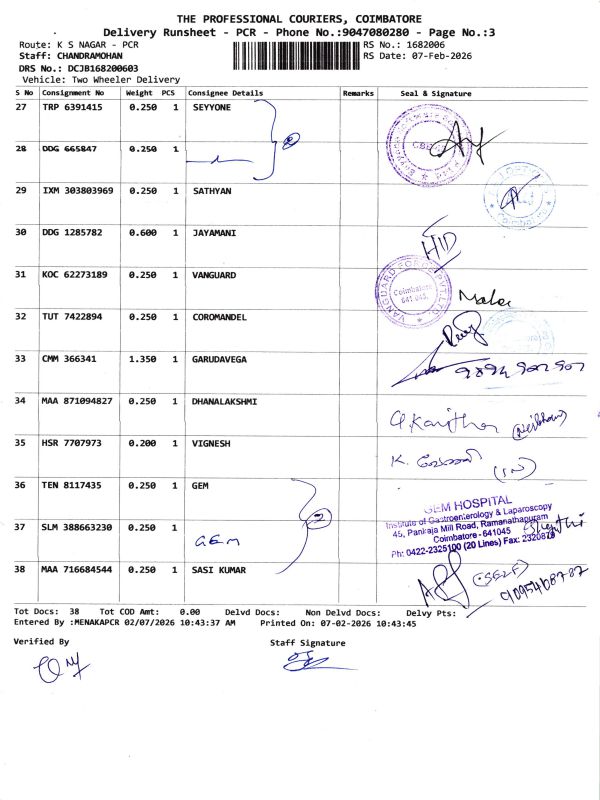 THE PROFESSIONAL COURIERS, COIMBATORE
Delivery Runsheet - PCR - Phone No.:9047080280 - Page No.:3
Route: K S NAGAR - PCR RS No.: 1682006
Staff: CHANDRAMOHAN RS Date: 07-Feb-2026
DRS No.: DCJB168200603
Vehicle: Two Wheeler Delivery
S No Consignment No Weight PCS Consignee Details Remarks Seal & Signature
27 TRP 6391415 0.250 1 SEYYONE
28 DDG 665847 0.250 1
2
29 IXM 303803969 0.250 1 SATHYAN
Coimbatore
30 DDG 1285782 0.600 1 JAYAMANI
31 KOC 62273189 0.250 1 VANGUARD
VANGUARD FORCE PVT LTD.
Coimbatore
641 045.
32 TUT 7422894 0.250 1 COROMANDEL
33 CMM 366341 1.350 1 GARUDAVEGA
34 MAA 871094827 0.250 1 DHANALAKSHMI
35 HSR 7707973 0.200 1 VIGNESH
K.
36 TEN 8117435 0.250 1 GEM
GEM HOSPITAL
Institute of Gastroenterology & Laparoscopy
45, Pankaja Mill Road, Ramanathapuram
Coimbatore - 641045
Ph: 0422-2325100 (20 Lines) Fax: 2320879
37 SLM 388663230 0.250 1
GEM
2
38 MAA 716684544 0.250 1 SASI KUMAR
(SELF)
Tot Docs: 38 Tot COD Amt: 0.00 Delvd Docs: Non Delvd Docs: Delvy Pts:
Entered By :MENAKAPCR 02/07/2026 10:43:37 AM Printed On: 07-02-2026 10:43:45
Verified By Staff Signature